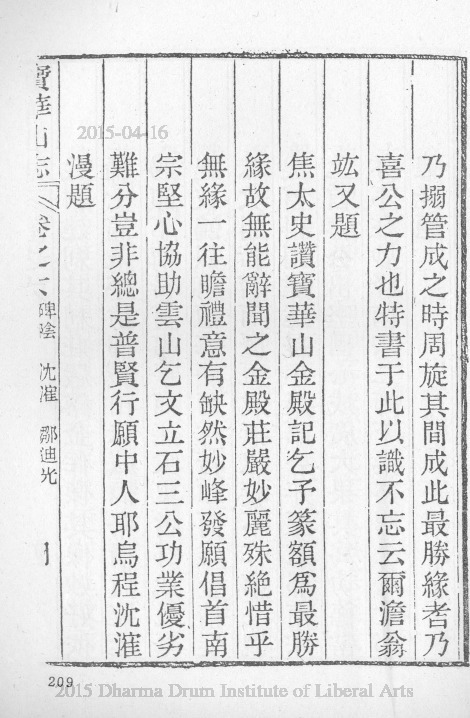 乃搦管成之時周旋其間成此最勝緣者乃
喜公之力也特書于此以識不忘云爾澹翁
竑又題
焦太史讚寶華山金殿記乞予篆額爲最勝
緣故無能辭聞之金殿莊嚴妙麗殊絕惜乎
無緣一往瞻禮意有缺然妙峰發願倡首南
宗堅心協助雲山乞文立石三公功業優劣
難分豈非總是普賢行願中人耶烏程沈㴶
漫題
寶華山志 卷之六 碑陰 沈㴶 鄒迪光
209
2015-04-16
2015 Dharma Drum Institute of Liberal Arts